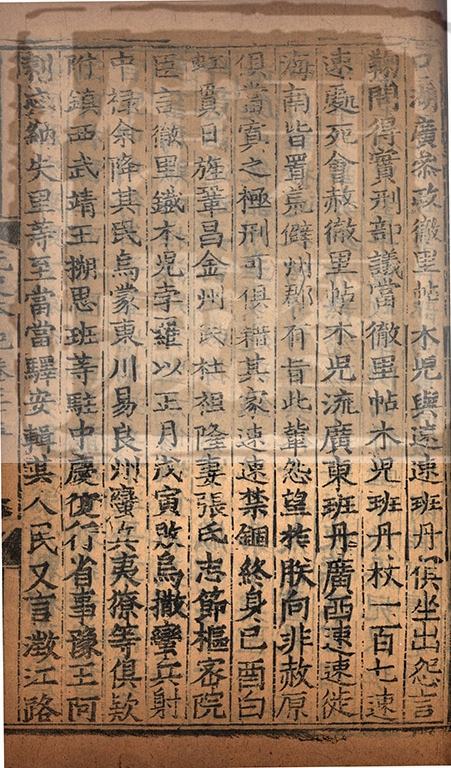 口湖廣參政徹里帖木兒與速速班丹俱坐出怨言
鞫問得實刑部議當徹里帖木兒班丹杖一百七速
速處死會赦徹里帖木兒流廣東班丹廣西速速徙
海南皆置荒僻州郡有旨此輩怨望於朕向非赦原
俱當寘之極刑可俱籍其家速速禁錮終身己酉白
虹貫日旌鞏昌金州民杜祖隆妻張氏志節樞密院
臣言徹里鐵木兒孛羅以正月戊寅敗烏撒蠻兵射
中祿余降其民烏蒙東川易良州蠻兵夷獠等俱款
附鎮西武靖王搠思班等駐中慶復行省事豫王阿
剌忒納失里等至當當驛安輯其人民又言澂江路